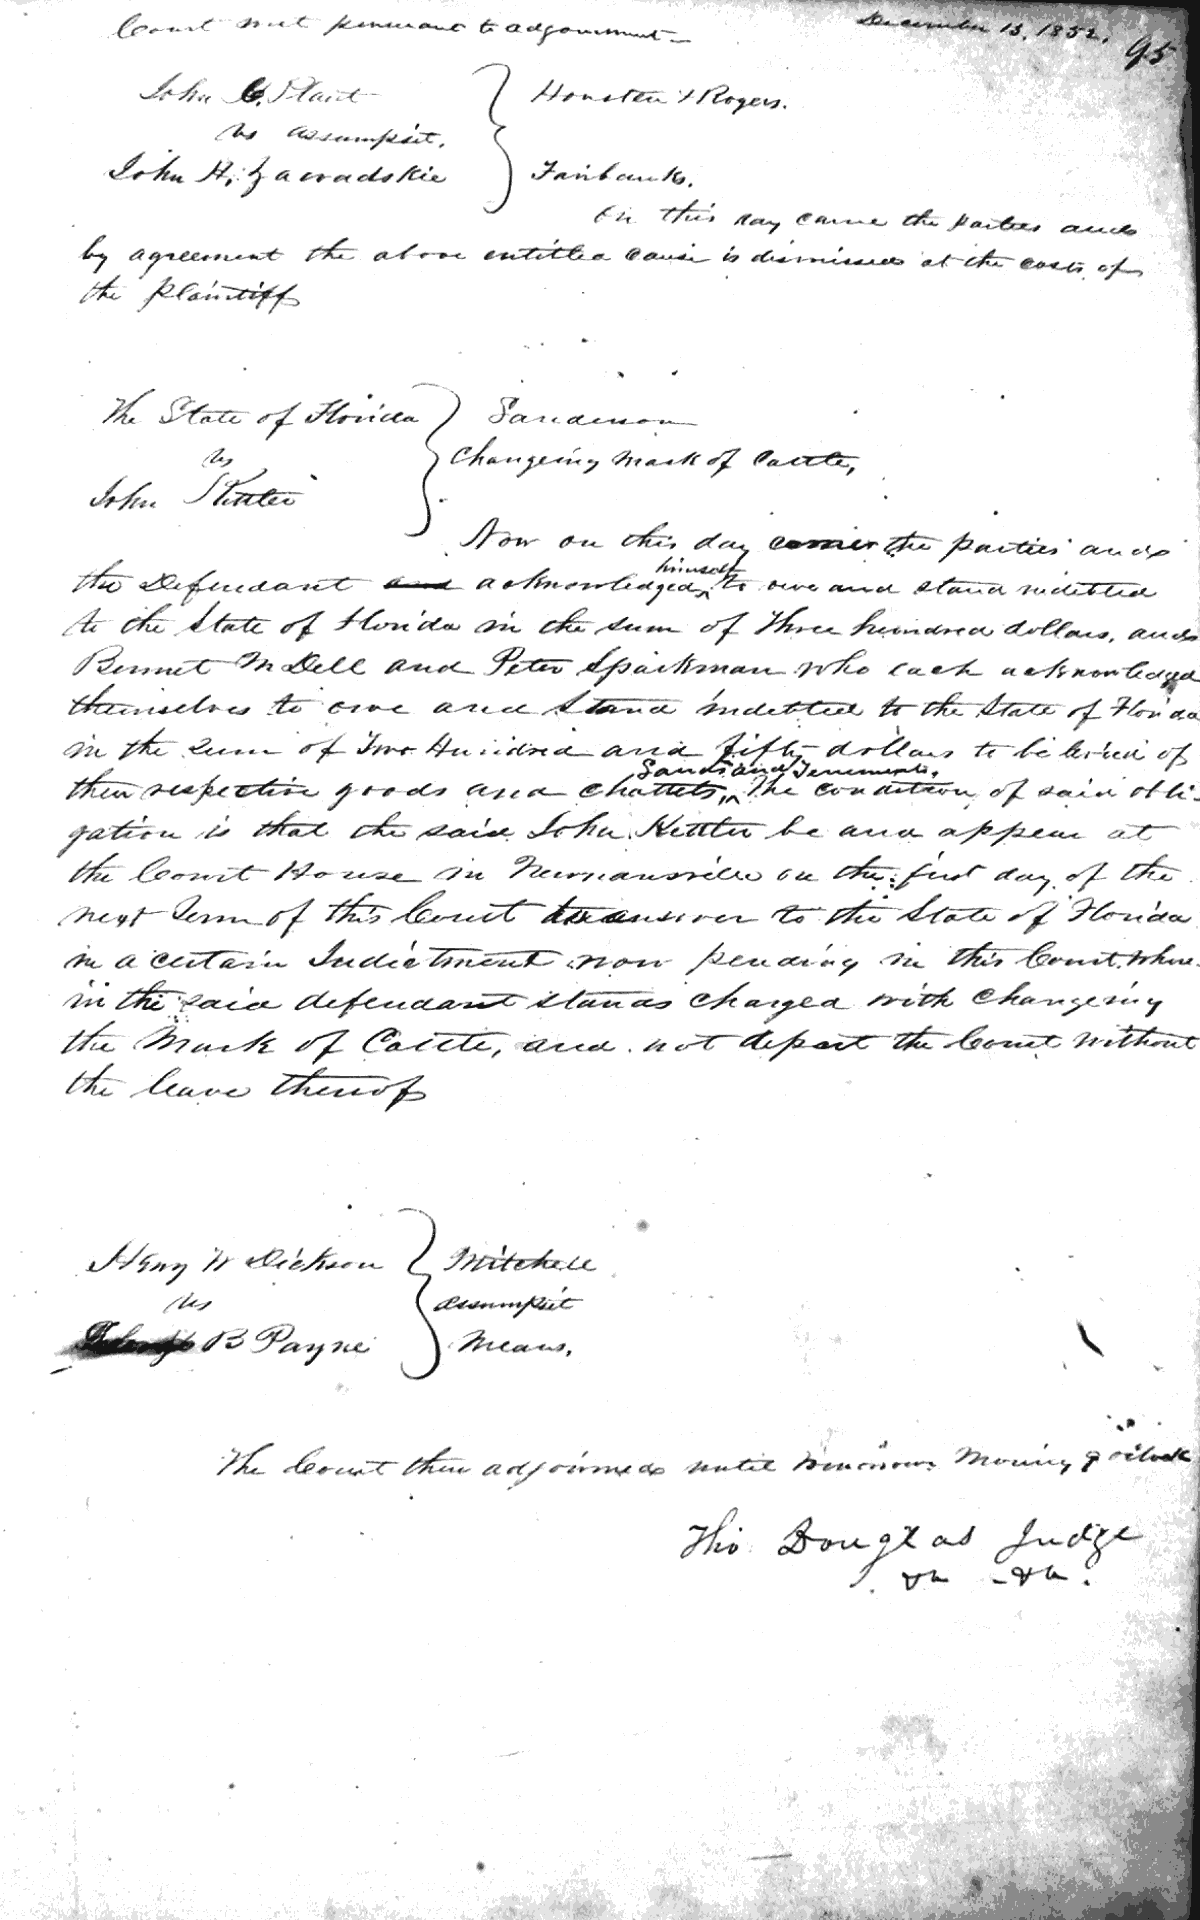 Court met pursuant to adjournment— December 13, 1852. 95
John C. Plant Houston & Rogers.
vs assumpsit.
John H. Zawadskie Fairbanks.
On this day came the parties and
by agreement the above entitled cause is dismissed at the costs of
the Plaintiff
The State of Florida Sanderson
vs Changeing mark of Cattle,
John Kettler
Now on this day comes the parties and
himself
the Defendant and acknowledged to owe and stand indebted
to the State of Florida in the sum of Three hundred dollars, and
Bennet M Dell and Peter Sparkman who each acknowledged
themselves to owe and stand indebted to the State of Florida
in the sum of Two Hundred and fifty dollars to be levied of
Lands and Tenements,
their respective goods and chattels, The condition of said obli-
gation is that the said John Kettler be and appear at
the Court House in Newnansville on the first day of the
next Term of this Court to answer to the State of Florida
in a certain Indictment now pending in this Court where-
in the said defendant stands charged with changeing
the Mark of Cattle, and not depart the Court without
the leave thereof
Henry W Dickson Mitchell
vs assumpsit
B Payne Means,
The Court then adjourned until tomorrow Morning 9 oclock
Tho Douglas Judge
&c -&c.